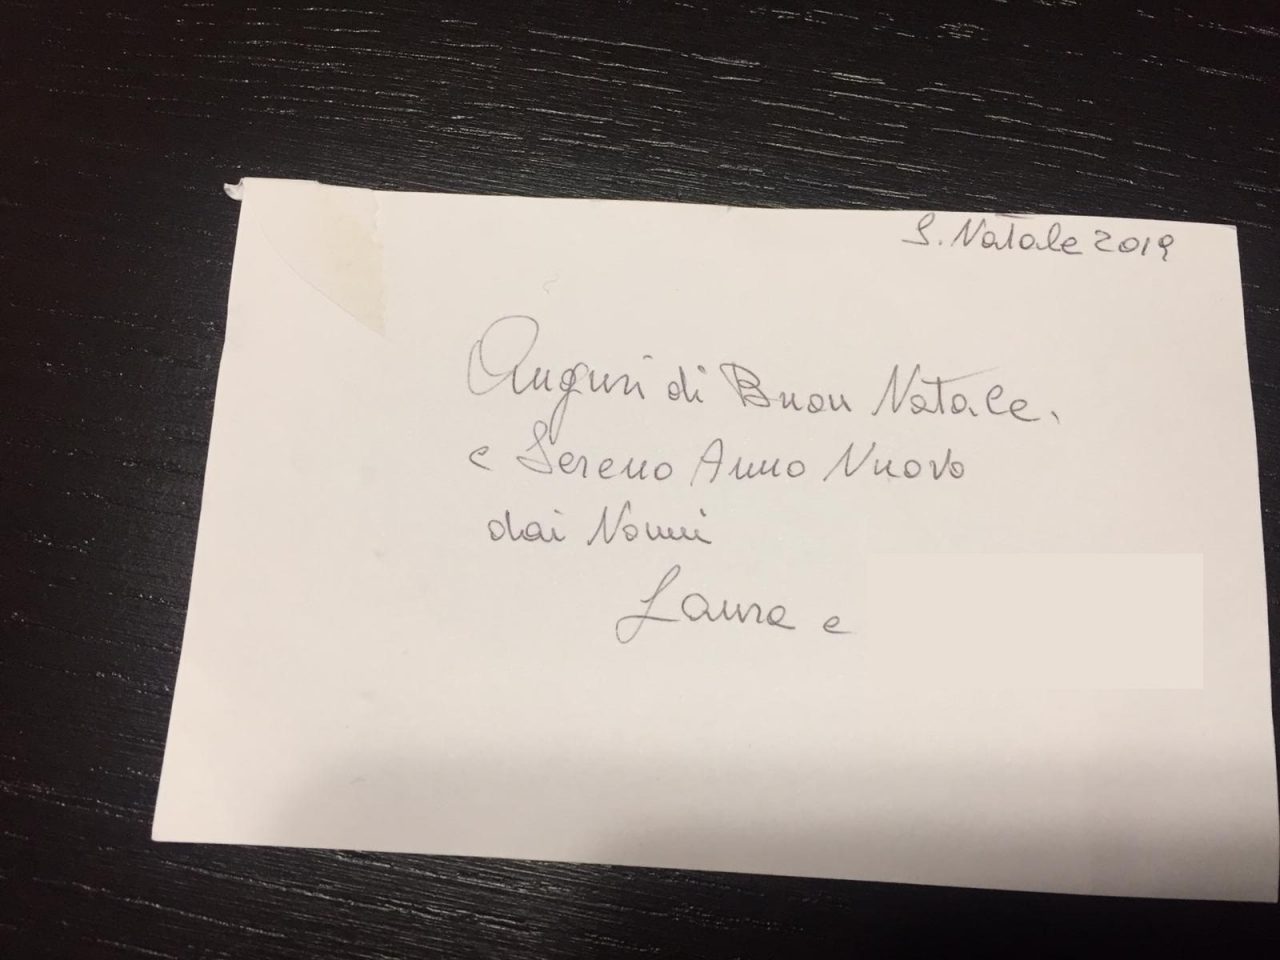 S. Natale 2019
Auguri di Buon Natale.
e Sereno Anno Nuovo
dai Nonni
Laura e